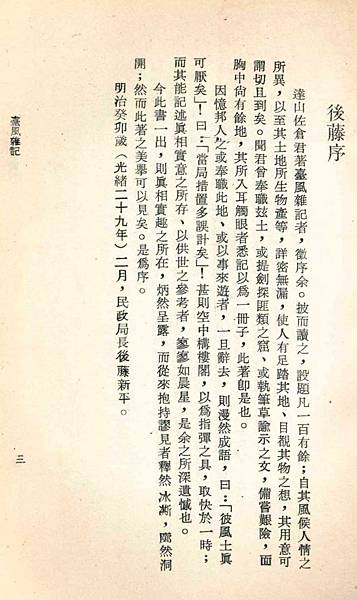 後藤序
達山佐倉君著臺風雜記者，徵序余。披而讀之，設題凡一百有餘；自其風俟人情之
所異，以至其土地所生物產等，詳密無漏，使人有足踏其地、目覩其物之想，其用意可
謂切且到矣。聞君曾奉職玆土，或提劍探匪類之窟、或執筆草諭示之文，備嘗艱險，而
胸中尙有餘地，其所入耳觸眼者悉記以為一冊子，此著卽是也。
因憶邦人之或奉職此地、或以事來遊者，一旦辭去，則漫然成語，曰：「彼風土眞
可厭矣」！曰：「當局措置多誤計矣」！甚則空中構樓閣，以爲指彈之具，取快於一時；
而其能記述眞相實意之所存、以供世之參考者，寥寥如晨星，是余之所深遺憾也。
今此書一出，則眞相實趣之所在，炳然呈露，而從來抱持謬見者釋然冰澌，豁然洞
開；然而此著之美擧可以見矣。是爲序。
明治癸卯歲（光緖二十九年）二月，民政局長後藤新平。
臺風雜記
三